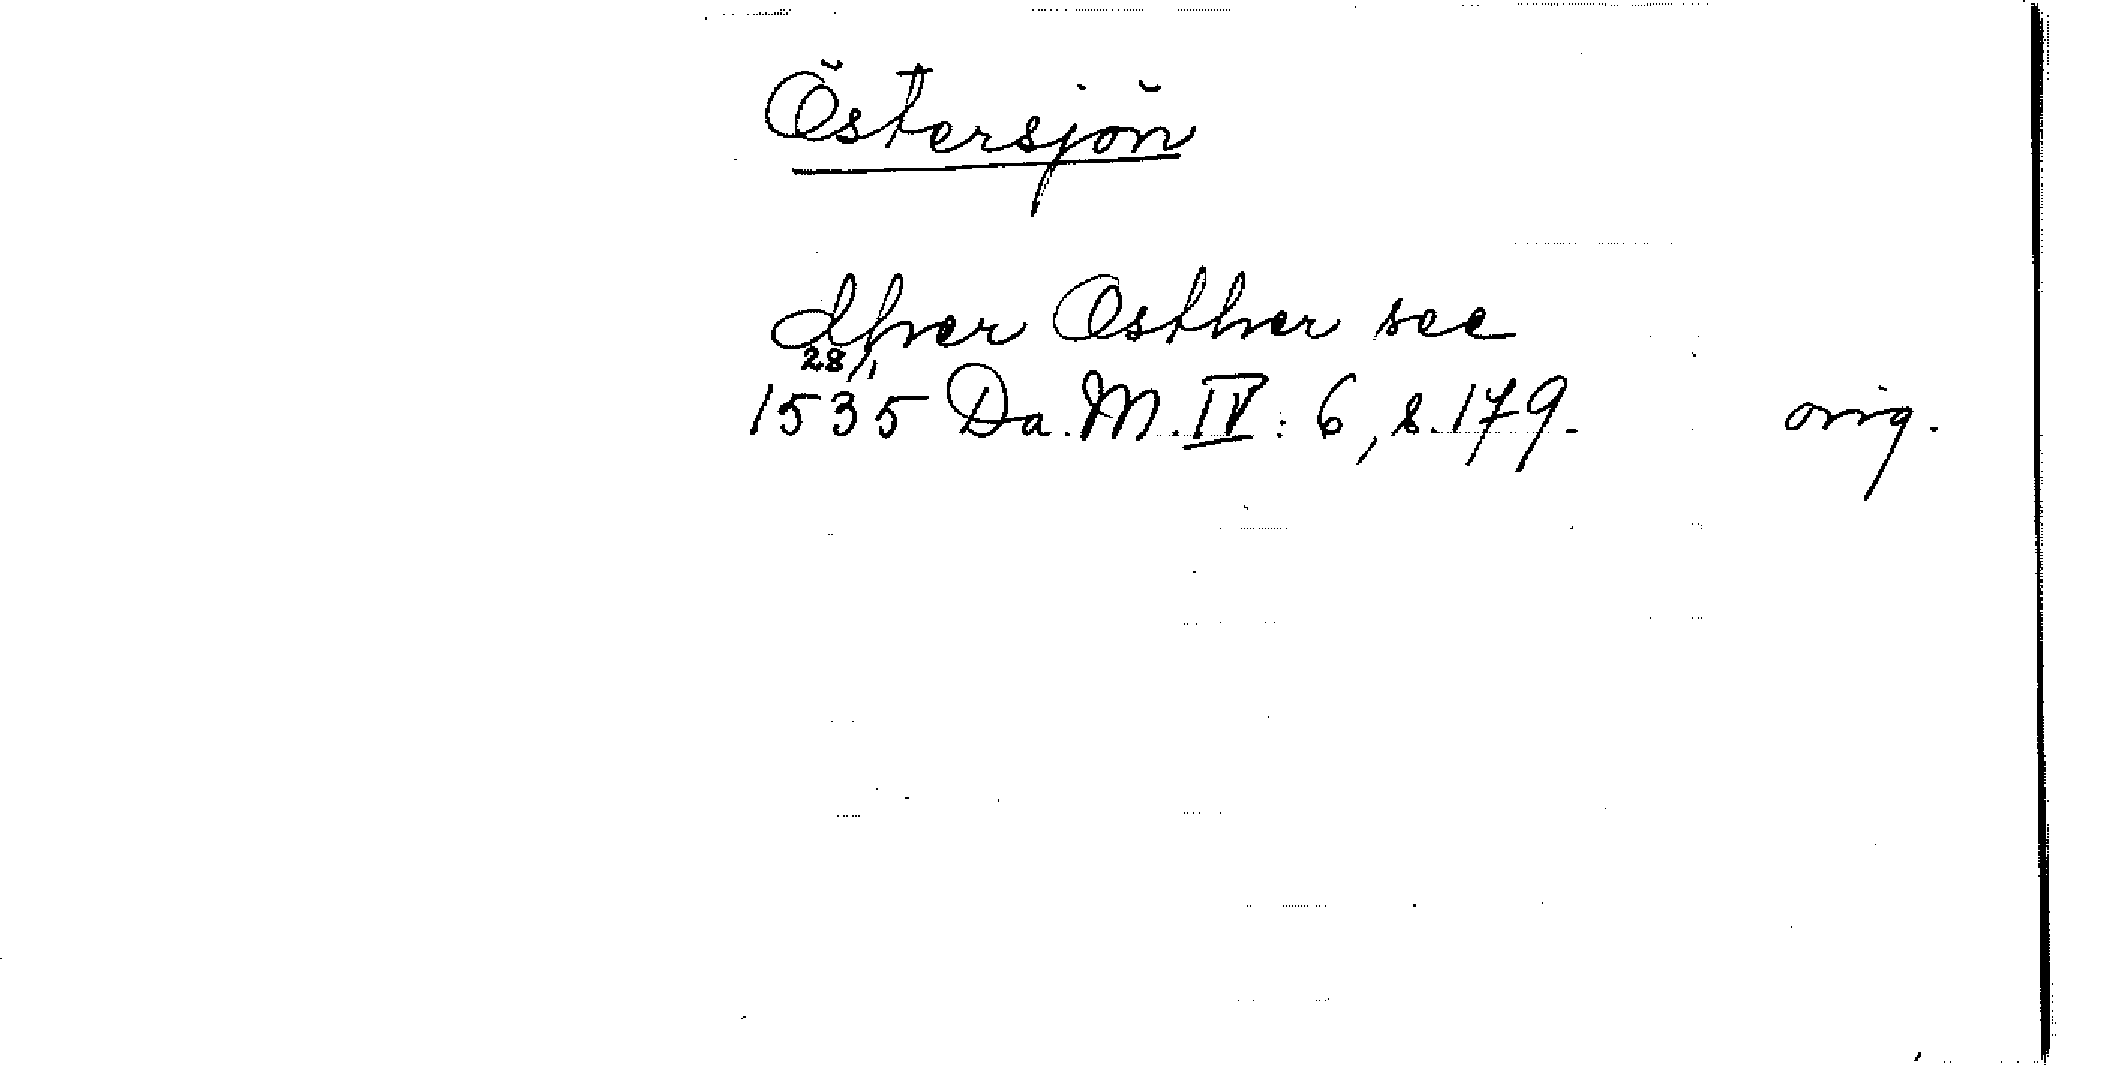 Östersjön
Offver Osther see
28/1
1535 Da. M. IV: 6, s. 179. orig.